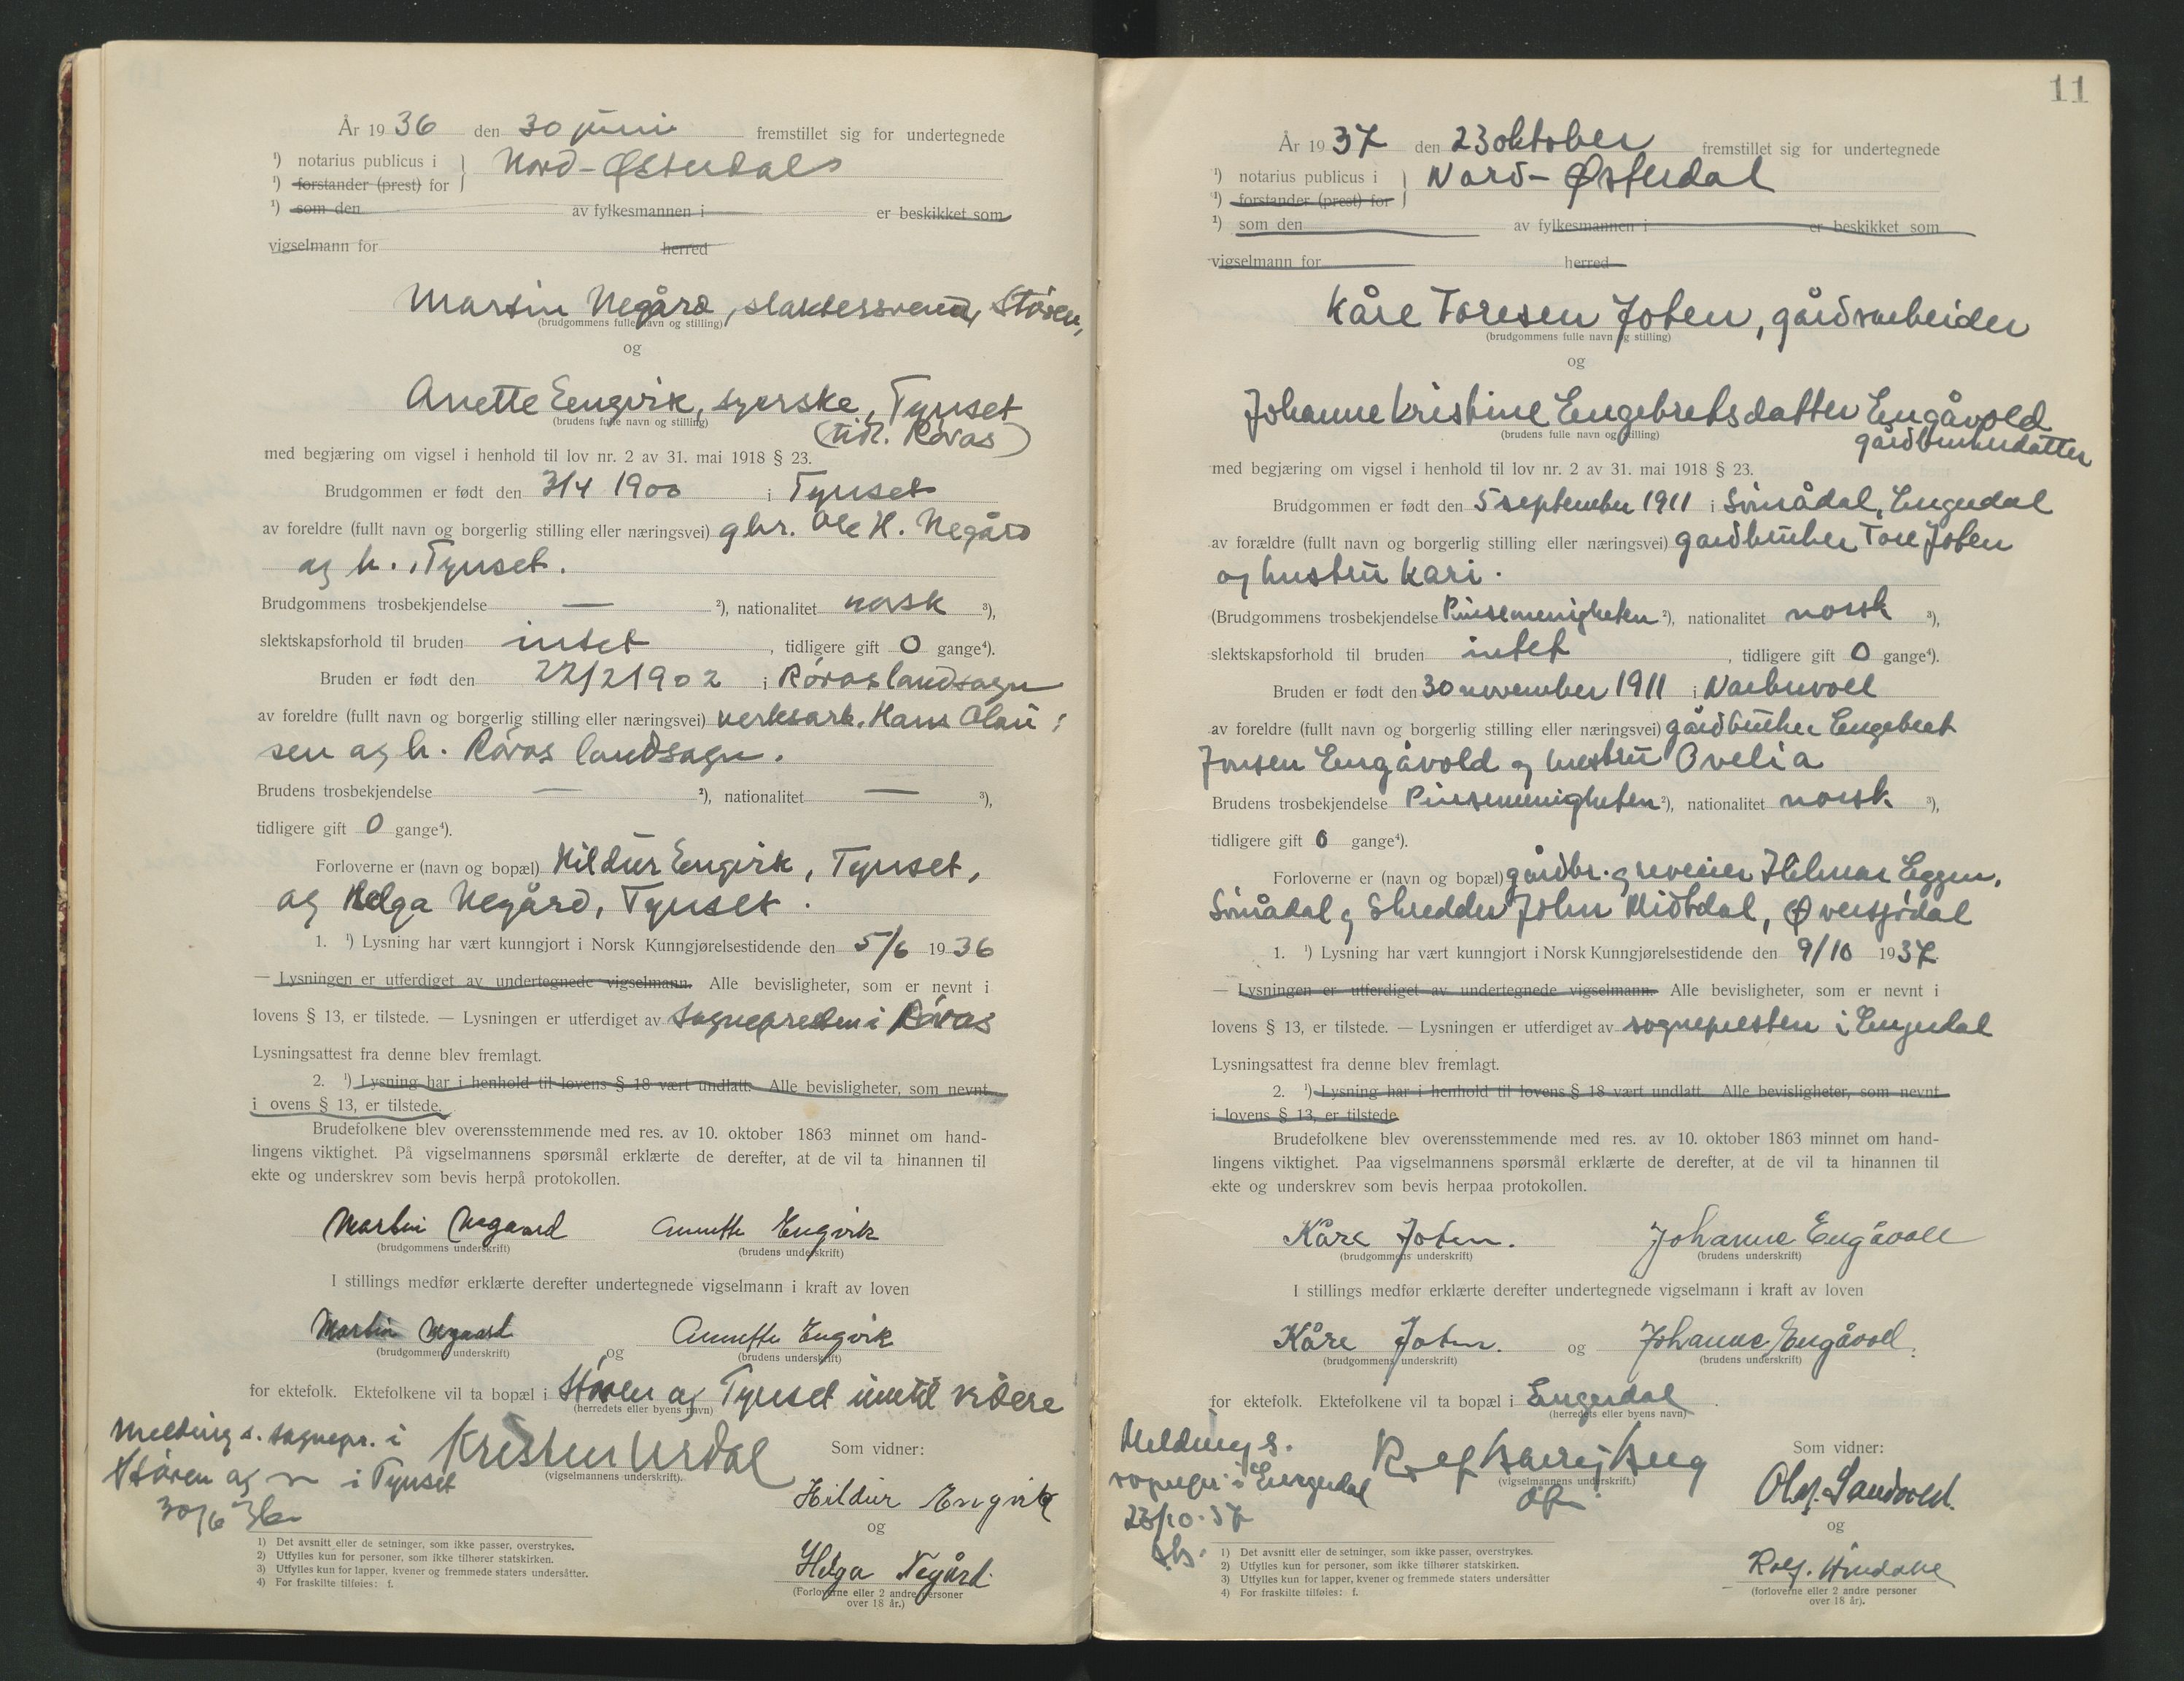 År 1936 den 30 juni fremstillet sig for undertegnede
¹) notarius publicus i } Nord-Østerdal
¹) forstander (prest) for
¹) som den av fylkesmannen i er beskikket som
vigselmann for herred
Martin Negård, slaktersvend, Støren,
(brudgommens fulle navn og stilling)
og
Anette Engvik, syerske, Tynset
(brudens fulle navn og stilling)
(tidl. Røros)
med begjæring om vigsel i henhold til lov nr. 2 av 31. mai 1918 § 23.
Brudgommen er født den 3/4 1900 i Tynset
av foreldre (fullt navn og borgerlig stilling eller næringsvei) gbr. Ole H. Negård
og h., Tynset.
Brudgommens trosbekjendelse — ²), nationalitet norsk ³),
slektskapsforhold til bruden intet, tidligere gift 0 gange⁴).
Bruden er født den 22/2 1902 i Røros landsogn
av foreldre (fullt navn og borgerlig stilling eller næringsvei) verksarb. Hans Olau-
sen og h. Røros landsogn.
Brudens trosbekjendelse — ²), nationalitet — ³),
tidligere gift 0 gange⁴).
Forloverne er (navn og bopæl) Hildur Engvik, Tynset,
og Helga Negård, Tynset.
1. ¹) Lysning har vært kunngjort i Norsk Kunngjørelsestidende den 5/6 1936
— Lysningen er utferdiget av undertegnede vigselmann. Alle bevisligheter, som er nevnt i
lovens § 13, er tilstede. — Lysningen er utferdiget av sognepresten i Røros
Lysningsattest fra denne blev fremlagt.
2. ¹) Lysning har i henhold til lovens § 18 vært undlatt. Alle bevisligheter, som nevnt
i ovens § 13, er tilstede.
Brudefolkene blev overensstemmende med res. av 10. oktober 1863 minnet om hand-
lingens viktighet. På vigselmannens spørsmål erklærte de derefter, at de vil ta hinannen til
ekte og underskrev som bevis herpå protokollen.
Martin Negaard Annette Engvik
(brudgommens underskrift) (brudens underskrift)
I stillings medfør erklærte derefter undertegnede vigselmann i kraft av loven
Martin Negaard og Annette Engvik
(brudgommens underskrift) (brudens underskrift)
for ektefolk. Ektefolkene vil ta bopæl i Støren og Tynset inntil videre
(herredets eller byens navn)
Melding s. sognepr. i
Støren og i Tynset
30/6 36
Kristen Urdal
(vigselmannens underskrift).
Som vidner:
Hildur Engvik
og
Helga Negård.
(Forloverne eller 2 andre personer
over 18 år.)
1) Det avsnitt eller de setninger, som ikke passer, overstrykes.
2) Utfylles kun for personer, som ikke tilhører statskirken.
3) Utfylles kun for lapper, kvener og fremmede staters undersåtter.
4) For fraskilte tilføies: f.
11
År 1937 den 23 oktober fremstillet sig for undertegnede
¹) notarius publicus i } Nord-Østerdal
¹) forstander (prest) for
¹) som den av fylkesmannen i er beskikket som
vigselmann for herred
Kåre Toresen Joten, gårdsarbeider
(brudgommens fulle navn og stilling)
og
Johanne Kristine Engebretsdatter Engåvold
(brudens fulle navn og stilling)
gårdbrukerdatter
med begjæring om vigsel i henhold til lov nr. 2 av 31. mai 1918 § 23.
Brudgommen er født den 5 september 1911 i Sømådal, Engerdal
av forældre (fullt navn og borgerlig stilling eller næringsvei) gardbruker Tore Joten
og hustru Kari.
(Brudgommens trosbekjendelse Pinsemenigheten ²), nationalitet norsk ³),
slektskapsforhold til bruden intet, tidligere gift 0 gange⁴).
Bruden er født den 30 november 1911 i Narbuvoll
av foreldre (fullt navn og borgerlig stilling eller næringsvei) gårdbruker Engebret
Jonsen Engåvold og hustru Ovelia
Brudens trosbekjendelse Pinsemenigheten ²), nationalitet norsk ³),
tidligere gift 0 gange⁴).
Forloverne er (navn og bopæl) gårdbr. og reveeier Hilmar Eggen,
Sømådal og Skredder John Midtdal, Øversjødal
1. ¹) Lysning har vært kunngjort i Norsk Kunngjørelsestidende den 9/10 1937
— Lysningen er utferdiget av undertegnede vigselmann. Alle bevisligheter, som er nevnt i
lovens § 13, er tilstede. — Lysningen er utferdiget av sognepresten i Engerdal
Lysningsattest fra denne blev fremlagt.
2. ¹) Lysning har i henhold til lovens § 18 vært undlatt. Alle bevisligheter, som nevnt
i lovens § 13, er tilstede
Brudefolkene blev overensstemmende med res. av 10. oktober 1863 minnet om hand-
lingens viktighet. Paa vigselmannens spørsmål erklærte de derefter, at de vil ta hinannen til
ekte og underskrev som bevis herpaa protokollen.
Kåre Joten. Johanne Engåvoll
(brudgommens underskrift) (brudens underskrift)
I stillings medfør erklærte derefter undertegnede vigselmann i kraft av loven
Kåre Joten. og Johanne Engåvoll.
(brudgommens underskrift) (brudens underskrift)
for ektefolk. Ektefolkene vil ta bopæl i Engerdal
(herredets eller byens navn)
Melding s.
sognepr. i Engerdal
23/10.37
(vigselmannens underskrift.)
Som vidner:
Olaf. Sandvold.
og
Rolf.
(forloverne eller 2 andre personer
over 18 år).
1) Det avsnitt eller de setninger, som ikke passer, overstrykes.
2) Utfylles kun for personer, som ikke tilhører statskirken.
3) Utfylles kun for lapper, kvener og fremmede staters undersåtter
4) For fraskilte tilføies: f.